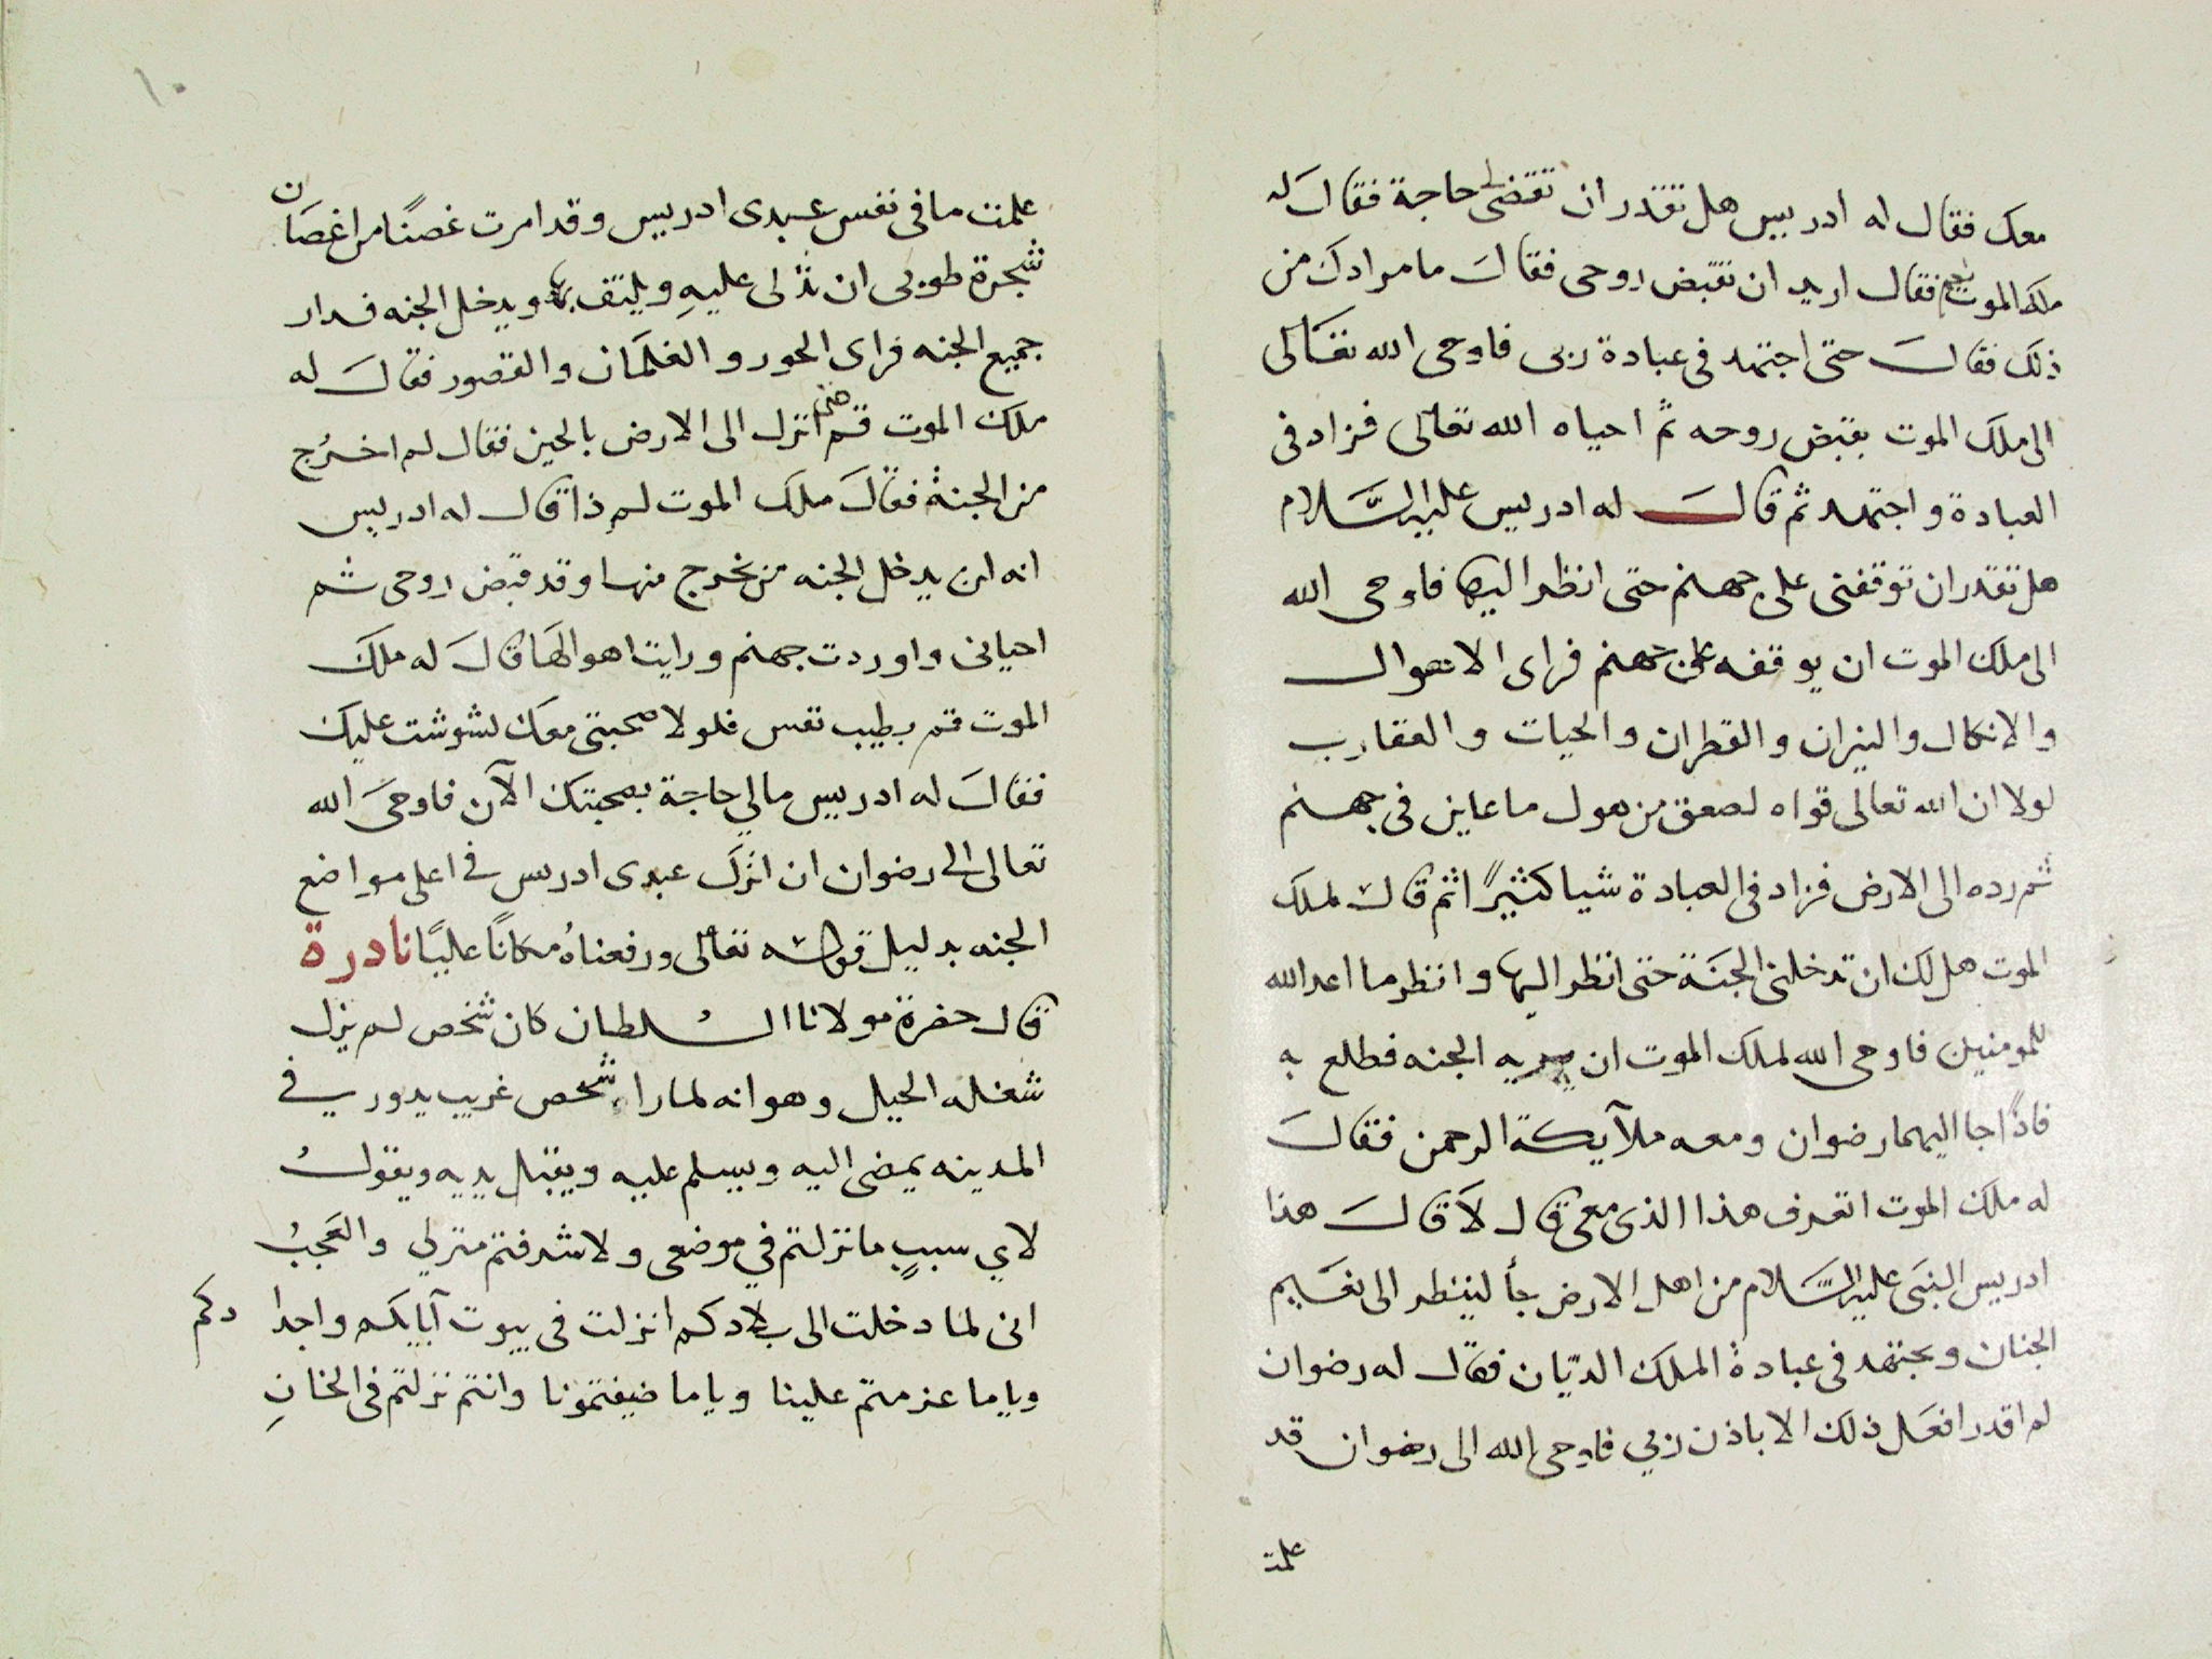 معك فقال له ادريس هل تقدر ان تقضى لى حاجة فقال له
ملك الموت نعم فقال اريد ان تقبض روحى فقال ما مرادك من
ذلك فقال حتى اجتهد فى عبادة ربى فاوحى الله تعالى
الى ملك الموت بقبض روحه ثم احياه الله تعالى فزاد فى
العبادة واجتهد ثم قال له ادريس عليه السلام
هل تقدر ان توقفنى على جهنم حتى انظر اليها فاوحى الله
الى ملك الموت ان يوقفه على جهنم فراى الاهوال
والانكال والنيران والقطران والحيات والعقارب
لولا ان الله تعالى قواه لصعق من هول ما عاين فى جهنم
ثم رده الى الارض فزاد فى العبادة شيا كثيرًا ثم قال لملك
الموت هل لك ان تدخلنى الجنة حتى انظر اليها وانظر ما اعد الله
للمومنين فاوحى الله لملك الموت ان الجنه فطلع به
فاذًا جا اليهما رضوان ومعه ملآيكة الرحمن فقال
له ملك الموت اتعرف هذا الذى معى قال لا قال هذا
ادريس النبى عليه السلام من اهل الارض جأ لينظر الى نعيم
الجنان ويجتهد فى عبادة الملك الديّان فقال له رضوان
لم اقدر افعل ذلك الا باذن ربي فاوحى الله الى رضوان قد
علمت
١٠
علمت ما فى نفس عبدى ادريس وقد امرت غصنًا من اغصان
شجرة طوبى ان تدلى عليهِ ويلتف به ويدخل الجنه فدار
جميع الجنه فراى الحور والغلمان والقصور فقال له
ملك الموت قم حتى انزل الى الارض بالحين فقال لم اخرُج
من الجنة فقال ملك الموت لم ذا قال له ادريس
انه لن يدخل الجنه من يخرج منها وقد قبض روحى ثم
احيانى واوردت جهنم ورايت اهوالها قال له ملك
الموت قم بطيب نفس فلولا صحبتى معك لشوشت عليك
فقال له ادريس مالي حاجة بصحبتك الآن فاوحى الله
تعالى الى رضوان ان انزل عبدى ادريس في اعلى مواضع
الجنه بدليل قوله تعالى ورفعناهُ مكانًا عليًا نادرة
قال حضرة مولانا السلطان كان شخص لم يزل
شغله الحيل وهو انه لما راى شخص غريب يدور في
المدينه يمضى اليه ويسلم عليه ويقبل يديه ويقول
لاي سببٍ ما نزلتم في موضعى ولا شرفتم منزلي والعجبُ
انى لما دخلت الى بلادكم انزلت فى بيوت آبايكم واجدادكم
وياما عزمتم علينا وياما ضيفتمونا وانتم نزلتم فى الخانِ